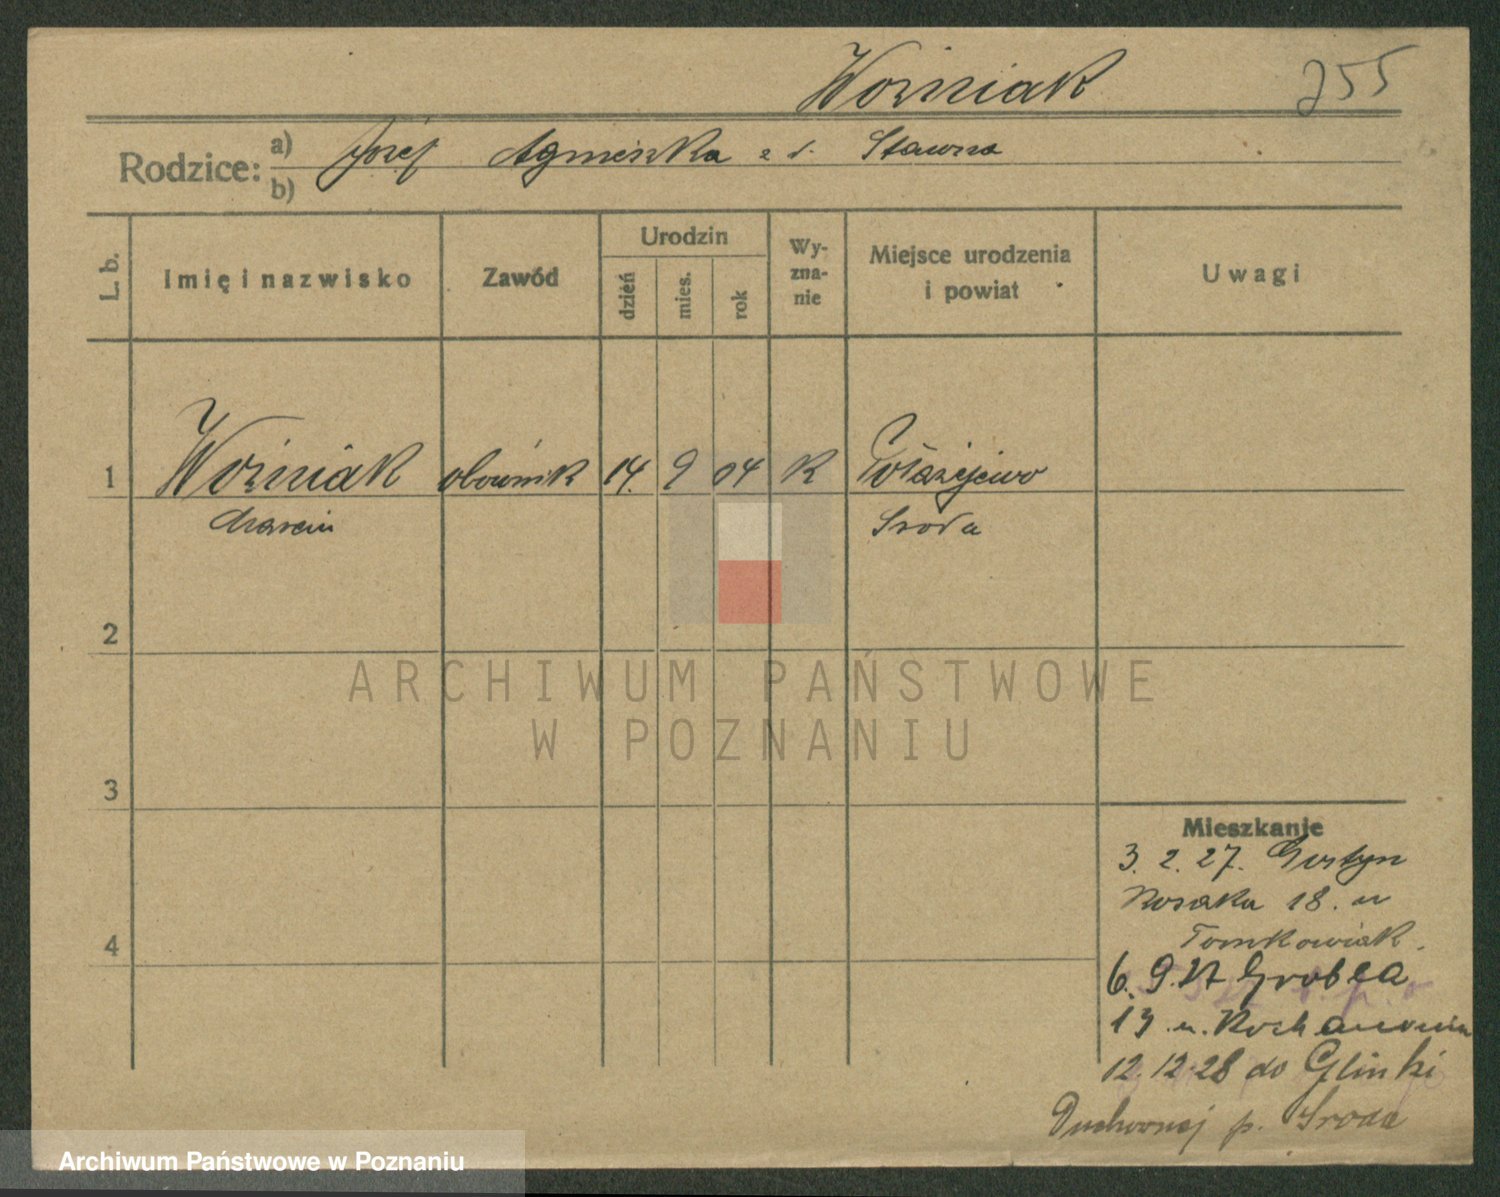 Woźniak 255
Rodzice: a) Józef Agnieszka z d. Stawna
b)
L. b. Imię i nazwisko Zawód Urodzin dzień mies. rok Wyznanie Miejsce urodzenia i powiat Uwagi
1 Woźniak obuwnik 14. 9 04 K Połażejewo
Marcin Środa
2
3
4
Mieszkanie
3. 2. 27. Gostyn
18. u
Tomkowiak.
6. 9. 27 Grobla
13 u.
12. 12. 28 do Glinki
Duchownej p. Środa
ARCHIWUM PAŃSTWOWE
W POZNANIU
Archiwum Państwowe w Poznaniu